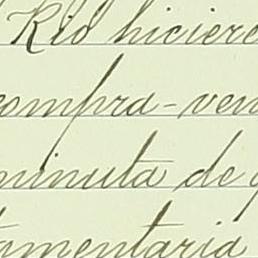 Rio hiciere
compra-ven
minuta de
tamentaria